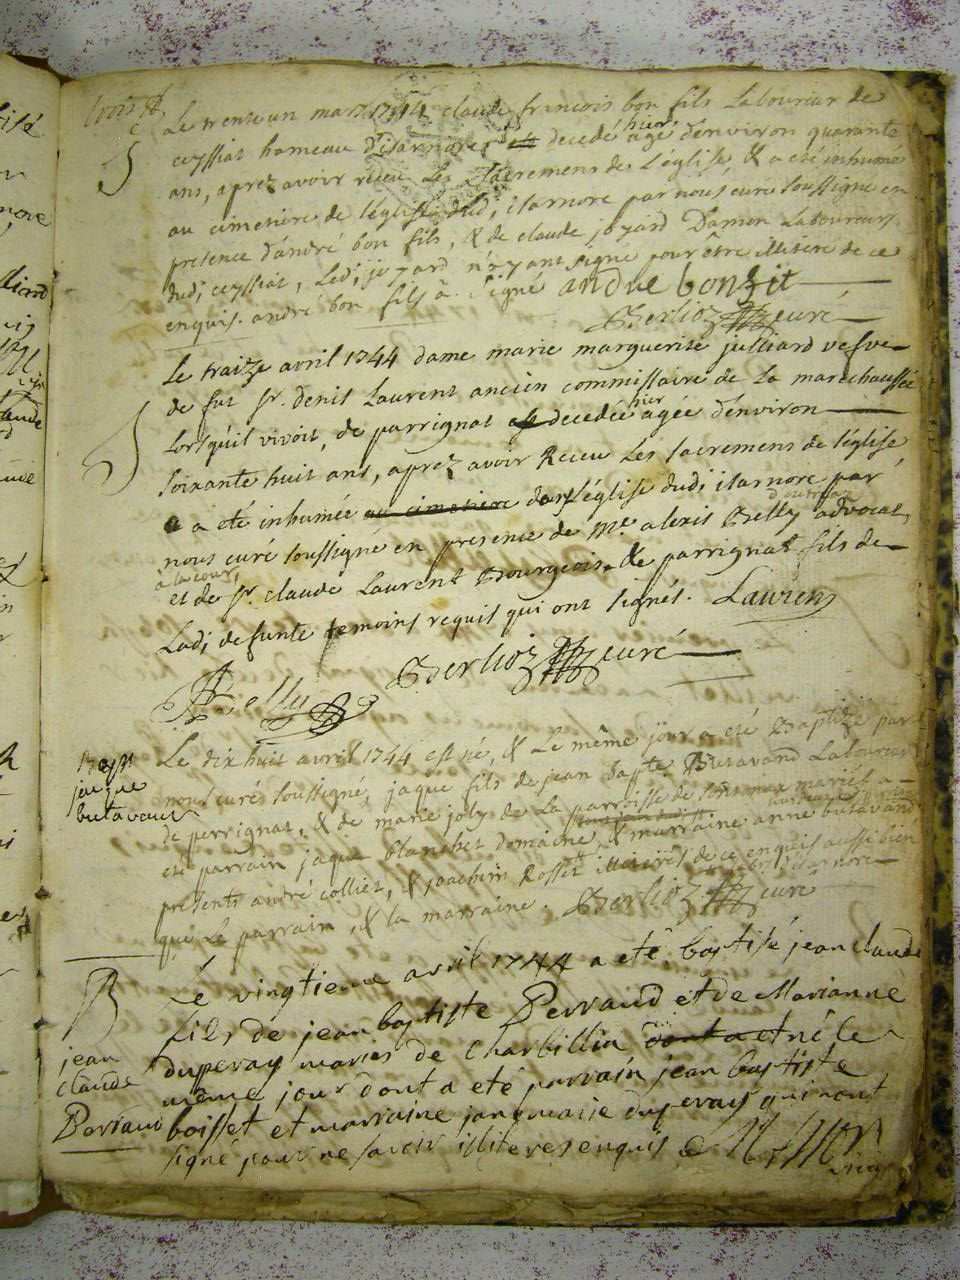 Le trente un mars 1744 claude francois bon fils Laboureur de
ceyssiat hameau d'isarnore est decedé hier agé d'environ quarante
ans, aprez avoir receu Les sacremens de L'église & a été inhumé
au cimetiere de l'église dud, isarnore par nous curé soussigné en
presence d'andré bon fils, & de claude joyard Damon Laboureurs
dudi, ceyssiat, Ledi, joyard n'ayant signé pour être illitéré de ce
enquis. andré bon fils a signé andre bonfit
Berlioz curé
Le traize avril 1744 dame marie marguerite julliard vefve
de fut sr. denis Laurent ancien commissaire de La marechaussée
Lorsqu'il vivoit, de parrignat est decedée hier agée d'environ
soixante huit ans, aprez avoir Receu Les sacremens de l'église
a été inhumée au cimetiere dans l'église dudi isarnore par
nous curé soussigné en presence de me. alexis Belly advocat
a la cour,
et de sr. claude Laurent Bourgeois de parrignat fils de
Ladi, defunte temoins requis qui ont signés. Laurens
Belly Berlioz curé
Le dix huit avril 1744 est né, & Le même jour a été Baptizé par
nous curé soussigné, jaque fils de jean bapte. Butavand Laboureur
de perrignat, & de marie joly de La parroisse de mariés a
été parrain jaque blanchet domaine, & marraine anne butavand
presents andré colliet, & joachim Rosset illiterés de ce enquis aussi bien
que Le parrain, & la marraine. Berlioz curé
jacque
butavant
Le vingtieme avril 1744 a eté baptisé jean claude
fils de jean baptiste Perraud et de Marianne
duperay mariés de Charbillia et né le
même jour dont a eté parrain jean baptiste
boisset et marraine jane marie duperay qui n'ont
signé pour ne savoir illiteres enquis
B
jean
claude
Perraud